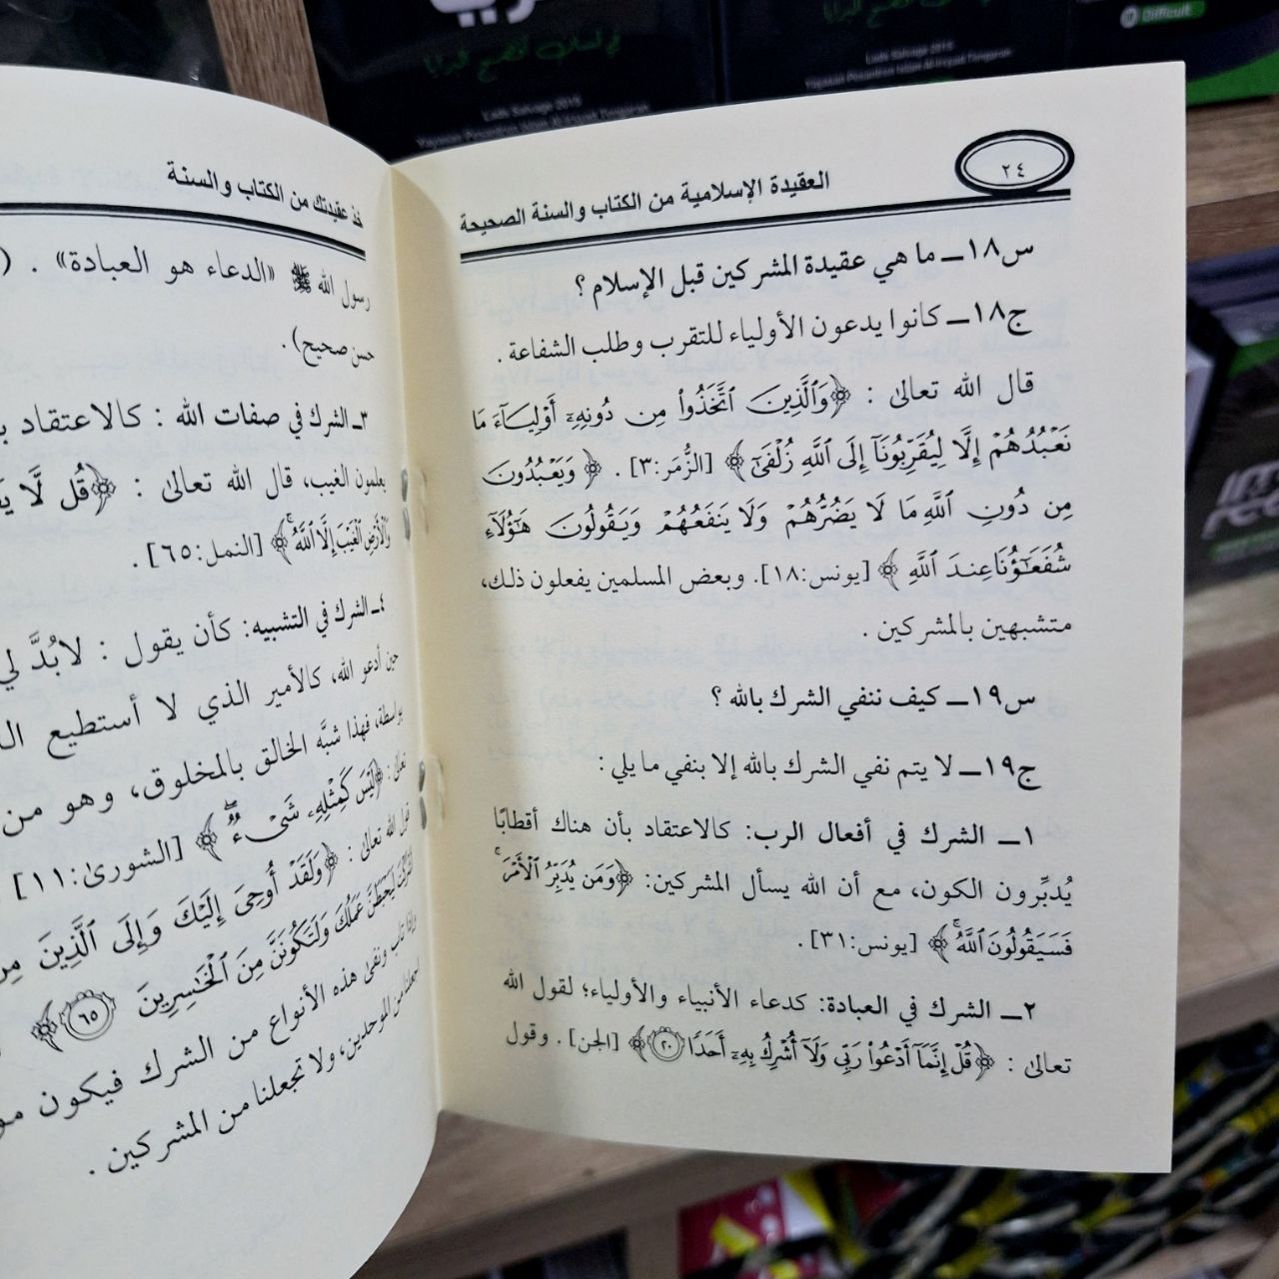 ٢٤
العقيدة الإسلامية من الكتاب والسنة الصحيحة
س١٨ــ ما هي عقيدة المشركين قبل الإسلام ؟
ج١٨ــ كانوا يدعون الأولياء للتقرب وطلب الشفاعة .
قال الله تعالى : ﴿وَٱلَّذِينَ ٱتَّخَذُواْ مِن دُونِهِۦٓ أَوْلِيَآءَ مَا
نَعْبُدُهُمْ إِلَّا لِيُقَرِّبُونَآ إِلَى ٱللَّهِ زُلْفَىٰٓ﴾ [الزُّمَر:٣] . ﴿وَيَعْبُدُونَ
مِن دُونِ ٱللَّهِ مَا لَا يَضُرُّهُمْ وَلَا يَنفَعُهُمْ وَيَقُولُونَ هَٰٓؤُلَآءِ
شُفَعَٰٓؤُنَا عِندَ ٱللَّهِ﴾ [يونس:١٨]. وبعض المسلمين يفعلون ذلك،
متشبهين بالمشركين .
س١٩ــ كيف ننفي الشرك بالله ؟
ج١٩ــ لا يتم نفي الشرك بالله إلا بنفي ما يلي :
١ــ الشرك في أفعال الرب: كالاعتقاد بأن هناك أقطابًا
يُدبِّرون الكون، مع أن الله يسأل المشركين: ﴿وَمَن يُدَبِّرُ ٱلْأَمْرَۚ
فَسَيَقُولُونَ ٱللَّهُۚ﴾ [يونس:٣١] .
٢ــ الشرك في العبادة: كدعاء الأنبياء والأولياء؛ لقول الله
تعالى : ﴿قُلْ إِنَّمَآ أَدْعُواْ رَبِّى وَلَآ أُشْرِكُ بِهِۦٓ أَحَدًا ٢٠﴾ [الجن] . وقول
خذ عقيدتك من الكتاب والسنة
رسول الله ﷺ «الدعاء هو العبادة» . (
حسن صحيح) .
٣ــ الشرك في صفات الله : كالاعتقاد
يعلمون الغيب، قال الله تعالى : ﴿قُل لَّا
وَٱلْأَرْضِ ٱلْغَيْبَ إِلَّا ٱللَّهُۚ﴾ [النمل:٦٥] .
٤ــ الشرك في التشبيه: كأن يقول : لابُدَّ لي
حين أدعو الله، كالأمير الذي لا أستطيع
بواسطة، فهذا شبَّه الخالق بالمخلوق، وهو من
تعالى: ﴿لَيْسَ كَمِثْلِهِۦ شَىْءٌۖ﴾ [الشورى:١١]
قول الله تعالى : ﴿وَلَقَدْ أُوحِىَ إِلَيْكَ وَإِلَى ٱلَّذِينَ مِن
أَشْرَكْتَ لَيَحْبَطَنَّ عَمَلُكَ وَلَتَكُونَنَّ مِنَ ٱلْخَٰسِرِينَ ٦٥﴾
وإذا تاب ونفى هذه الأنواع من الشرك فيكون
اجعلنا من الموحدين، ولا تجعلنا من المشركين .
Difficult